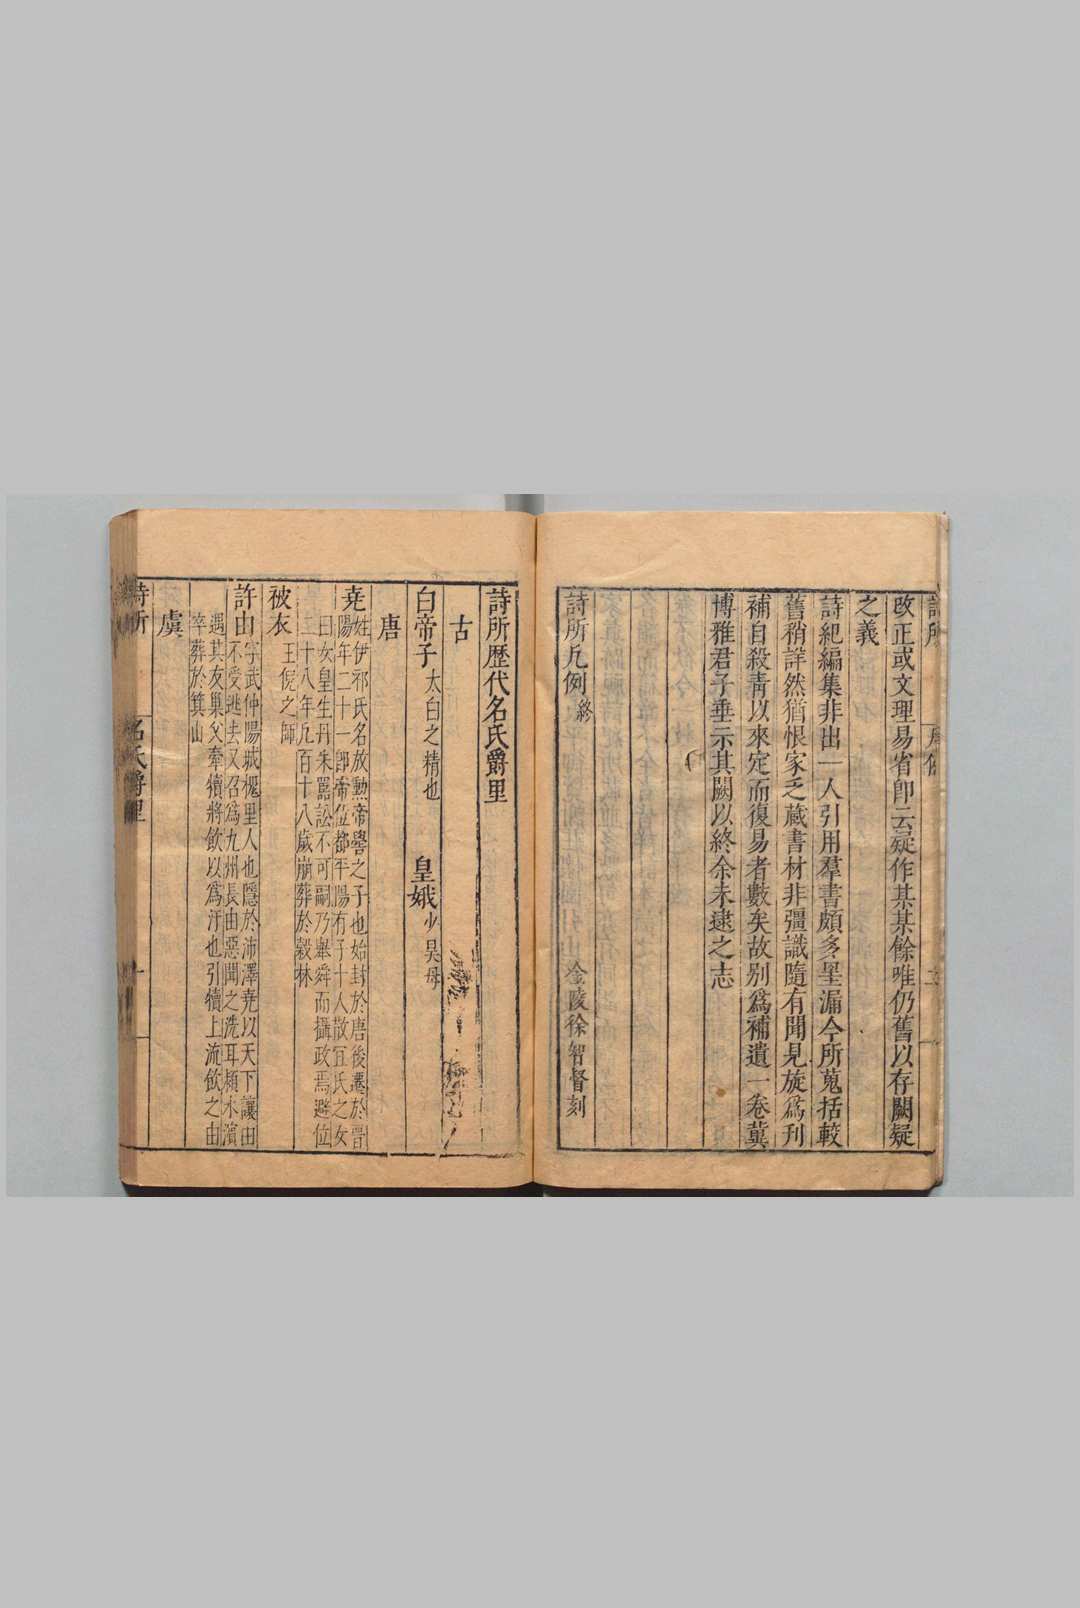 改正或文理易省即云疑作某某餘唯仍舊以存闕疑
之義
詩紀編集非出一人引用羣書頗多罣漏今所蒐括較
舊稍詳然猶恨家乏藏書材非彊識隨有聞見旋為刊
補自殺青以來定而復易者數矣故別為補遺一卷冀
博雅君子垂示其闕以終余未逮之志
詩所凡例終 金陵徐智督刻
詩所歷代名氏爵里
古
白帝子 太白之精也 皇娥 少昊母
唐
堯 姓伊祁氏名放勳帝嚳之子也始封於唐後遷於晉
陽年二十一即帝位都平陽有子十人散宜氏之女
曰女皇生丹朱嚚訟不可嗣乃舉舜而攝政焉避位
二十八年凡百十八歲崩葬於穀林
被衣 王倪之師
許由 字武仲陽城槐里人也隱於沛澤堯以天下讓由
不受逃去又召為九州長由惡聞之洗耳潁水濱
遇其友巢父牽犢將飲以為汙也引犢上流飲之由
卒葬於箕山
虞
詩所 名氏爵里 一